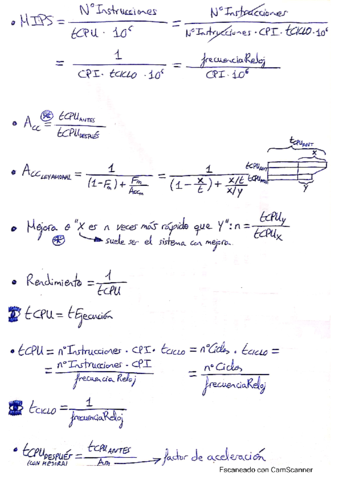 • MIPS = NºInstrucciones / tCPU · 10⁶ = NºInstrucciones / NºInstrucciones · CPI · tCICLO · 10⁶
= 1 / CPI · tCICLO · 10⁶ = frecuenciaReloj / CPI · 10⁶
• Acc = tCPU ANTES / tCPU DESPUÉS
tCPU ANT
x
tCPU ANT
tCPU DES
y
• Acc LEY AMDAHL = 1 / (1-Fm) + Fm/Accm = 1 / (1 - x/t) + x/t / x/y
• Mejora o "X es n veces más rápido que Y": n = tCPUy / tCPUx
suele ser el sistema con mejora.
• Rendimiento = 1 / tCPU
tCPU = tEjecución
• tCPU = nºInstrucciones · CPI · tCICLO = nºCiclos · tCICLO =
= nºInstrucciones · CPI / frecuenciaReloj = nºCiclos / frecuenciaReloj
tCICLO = 1 / frecuenciaReloj
• tCPU DESPUÉS (CON MEJORA) = tCPU ANTES / Am → factor de aceleración
Escaneado con CamScanner